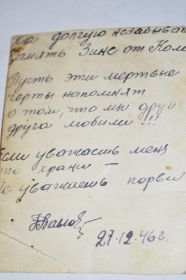 На долгую незабывае
память Зине от Коли
Пусть эти мертвые
черты напомнят
о том, что мы друг
друга любили!!!
Если уважаешь меня
то храни —
не уважаешь порви
27.12.46г.